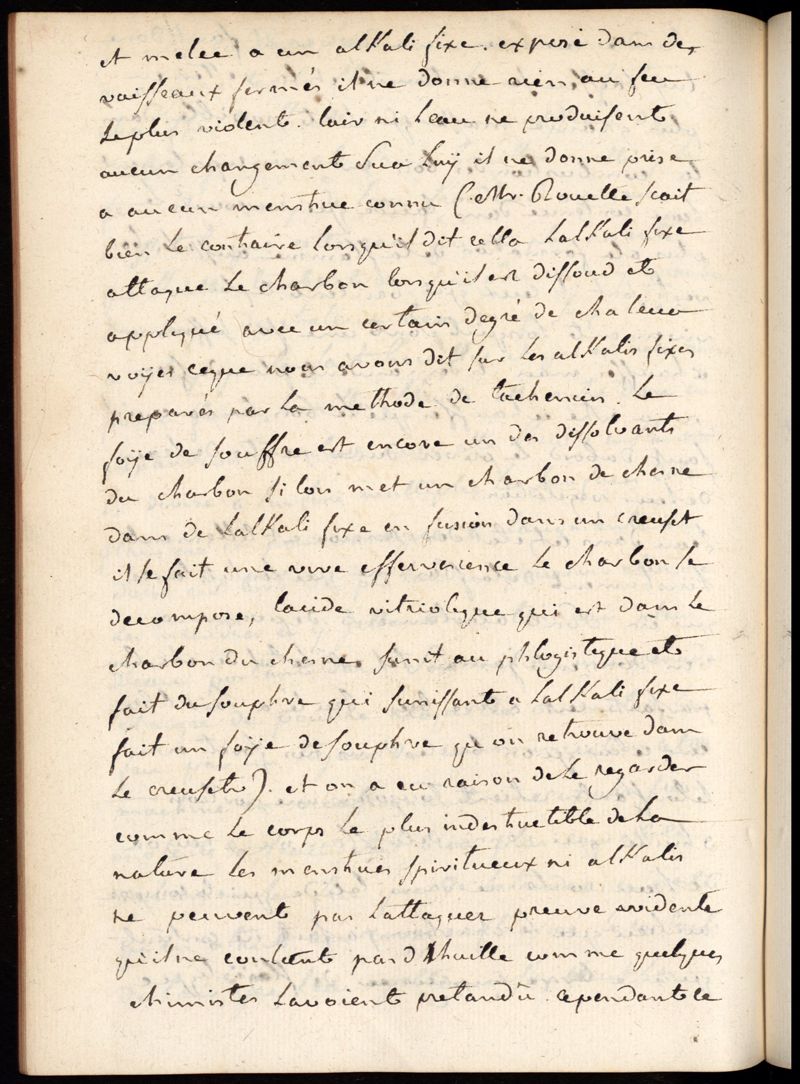 et melée a un alKali fixe. exposé dans des
vaisseaux fermés il ne donne rien au feu
Le plus violent. lair ni Leau ne produisent
aucun changement Sur Luÿ il ne donne prise
a aucun menstrue connu (. Mr. Rouelle scait
bien Le contraire Lorsqu'il dit cella LalKali fixe
attaque Le charbon lorsquil est dissoud et
appliqué avec un certain degré de chaleur
voÿes ceque nous avons dit sur Les alKalis fixes
preparés par La methode de tachenius. Le
foÿe de souffre est encore un des dissolvants
du charbon si lon met un charbon de chesne
dans de LalKali fixe en fusion dans un creuset
il se fait une vive effervescence Le charbon se
decompose, lacide vitriolique qui est dans Le
charbon du chesne sunit au phlogistique et
fait du souphre qui sunissant a LalKali fixe
fait un foÿe de souphre qu on retrouve dans
Le creuset). et on a eu raison de Le regarder
comme Le corps Le plus indestructible de La
nature Les menstrues spiritueux ni alKalis
ne peuvent pas Lattaquer preuve evidente
quil ne contient pas d'huille comme quelques
chimistes Lavoient pretandû. cependant ce